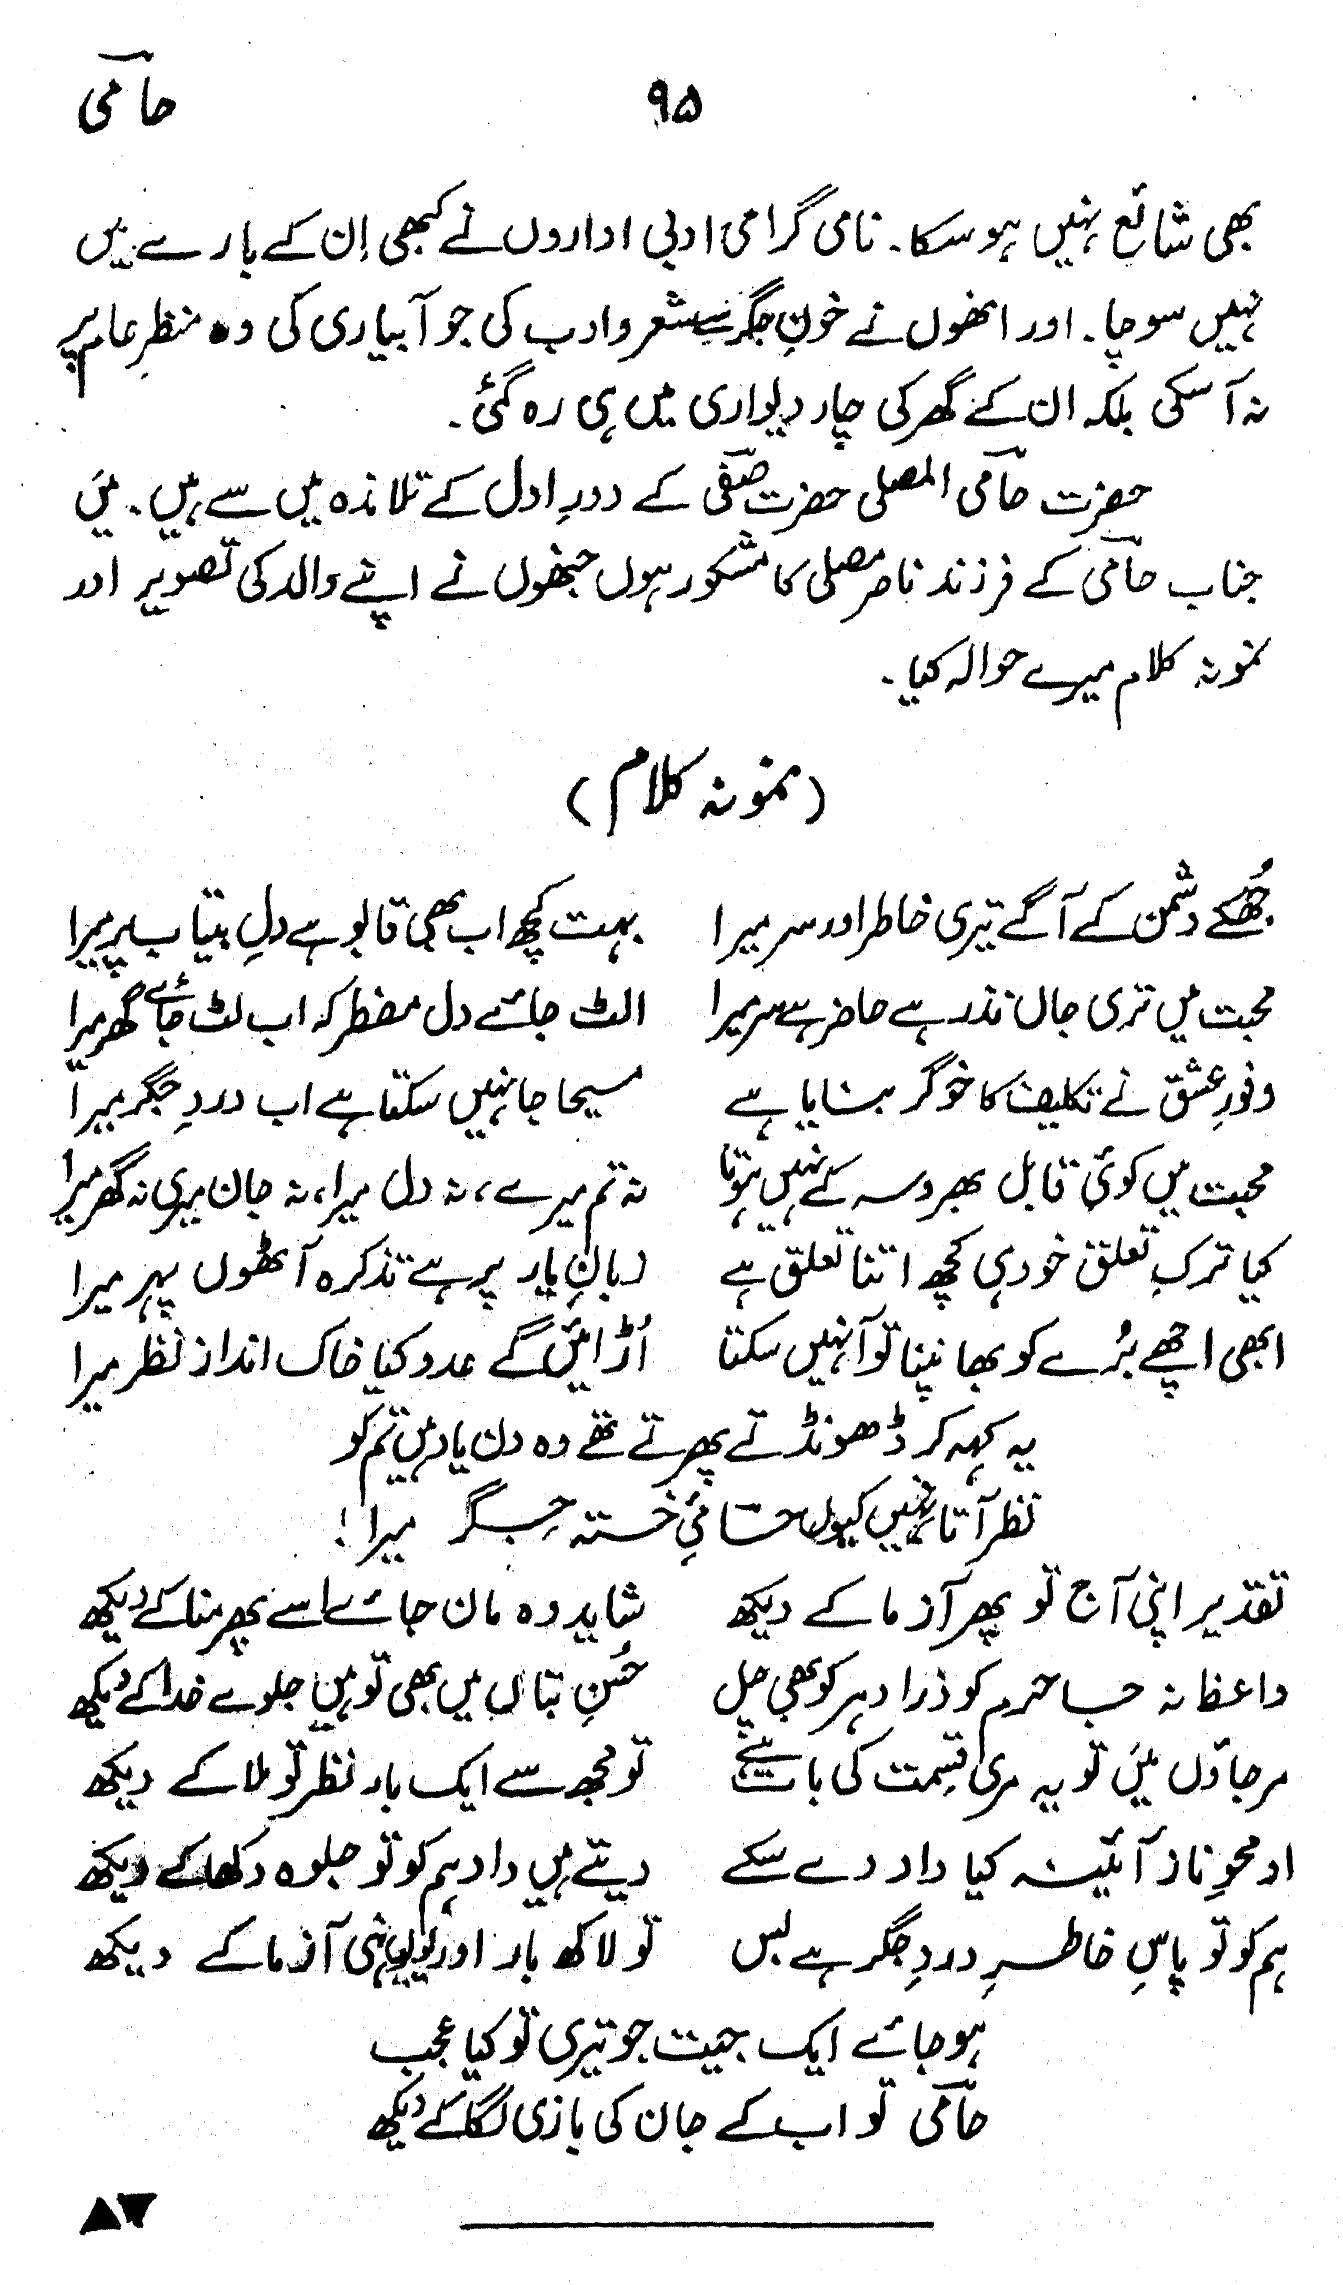 حامی
۹۵
بھی شائع نہیں ہو سکا۔ نامی گرامی ادبی اداروں نے کبھی اِن کے بارے میں
نہیں سوچا۔ اور انھوں نے خونِ جگر سے شعر و ادب کی جو آبیاری کی وہ منظرِ عام پر
نہ آ سکی بلکہ ان کے گھر کی چار دیواری میں ہی رہ گئی۔
حضرت حامی المصلی حضرت صفی کے دورِ اول کے تلامذہ میں سے ہیں۔ میں
جناب حامی کے فرزند ناصر مصلی کا مشکور ہوں جنھوں نے اپنے والد کی تصویر اور
نمونہ کلام میرے حوالہ کیا۔
(نمونہ کلام)
جُھکے دشمن کے آگے تیری خاطر اور سر میرا بہت کچھ اب بھی قابو ہے دلِ بیتاب پر میرا
محبت میں تری جاں نذر ہے حاضر ہے سر میرا الٹ جائے دل مضطر کہ اب لٹ جائے گھر میرا
وفورِ عشق نے تکلیف کا خوگر بنایا ہے مسیحا جا نہیں سکتا ہے اب دردِ جگر میرا
محبت میں کوئی قابل بھروسہ کے نہیں ہوتا نہ تم میرے، نہ دل میرا، نہ جان میری نہ گھر میرا
کیا ترکِ تعلق خود ہی کچھ اتنا تعلق ہے زبانِ یار پر ہے تذکرہ آٹھوں پہر میرا
ابھی اچھے بُرے کو بھانپنا تو آ نہیں سکتا اُڑائیں گے عدو کیا خاک انداز نظر میرا
یہ کہہ کر ڈھونڈتے پھرتے تھے وہ دن یاد ہیں تم کو
نظر آتا نہیں کیوں حامئ خستہ جگر میرا!
تقدیر اپنی آج تو پھر آزما کے دیکھ شاید وہ مان جائے اسے پھر منا کے دیکھ
واعظ نہ جا حرم کو ذرا دہر کو بھی چل حُسنِ بتاں میں بھی تو ہیں جلوے خدا کے دیکھ
مر جاؤں میں تو یہ مری قسمت کی بات ہے تو مجھ سے ایک بار نظر تو ملا کے دیکھ
او محوِ ناز آئینہ کیا داد دے سکے دیتے ہیں داد ہم کو تو جلوہ دکھا کے دیکھ
ہم کو تو پاسِ خاطرِ دردِ جگر ہے بس تو لاکھ بار اور یونہی آزما کے دیکھ
ہو جائے ایک جیت جو تیری تو کیا عجب
حامی تو اب کے جان کی بازی لگا کے دیکھ